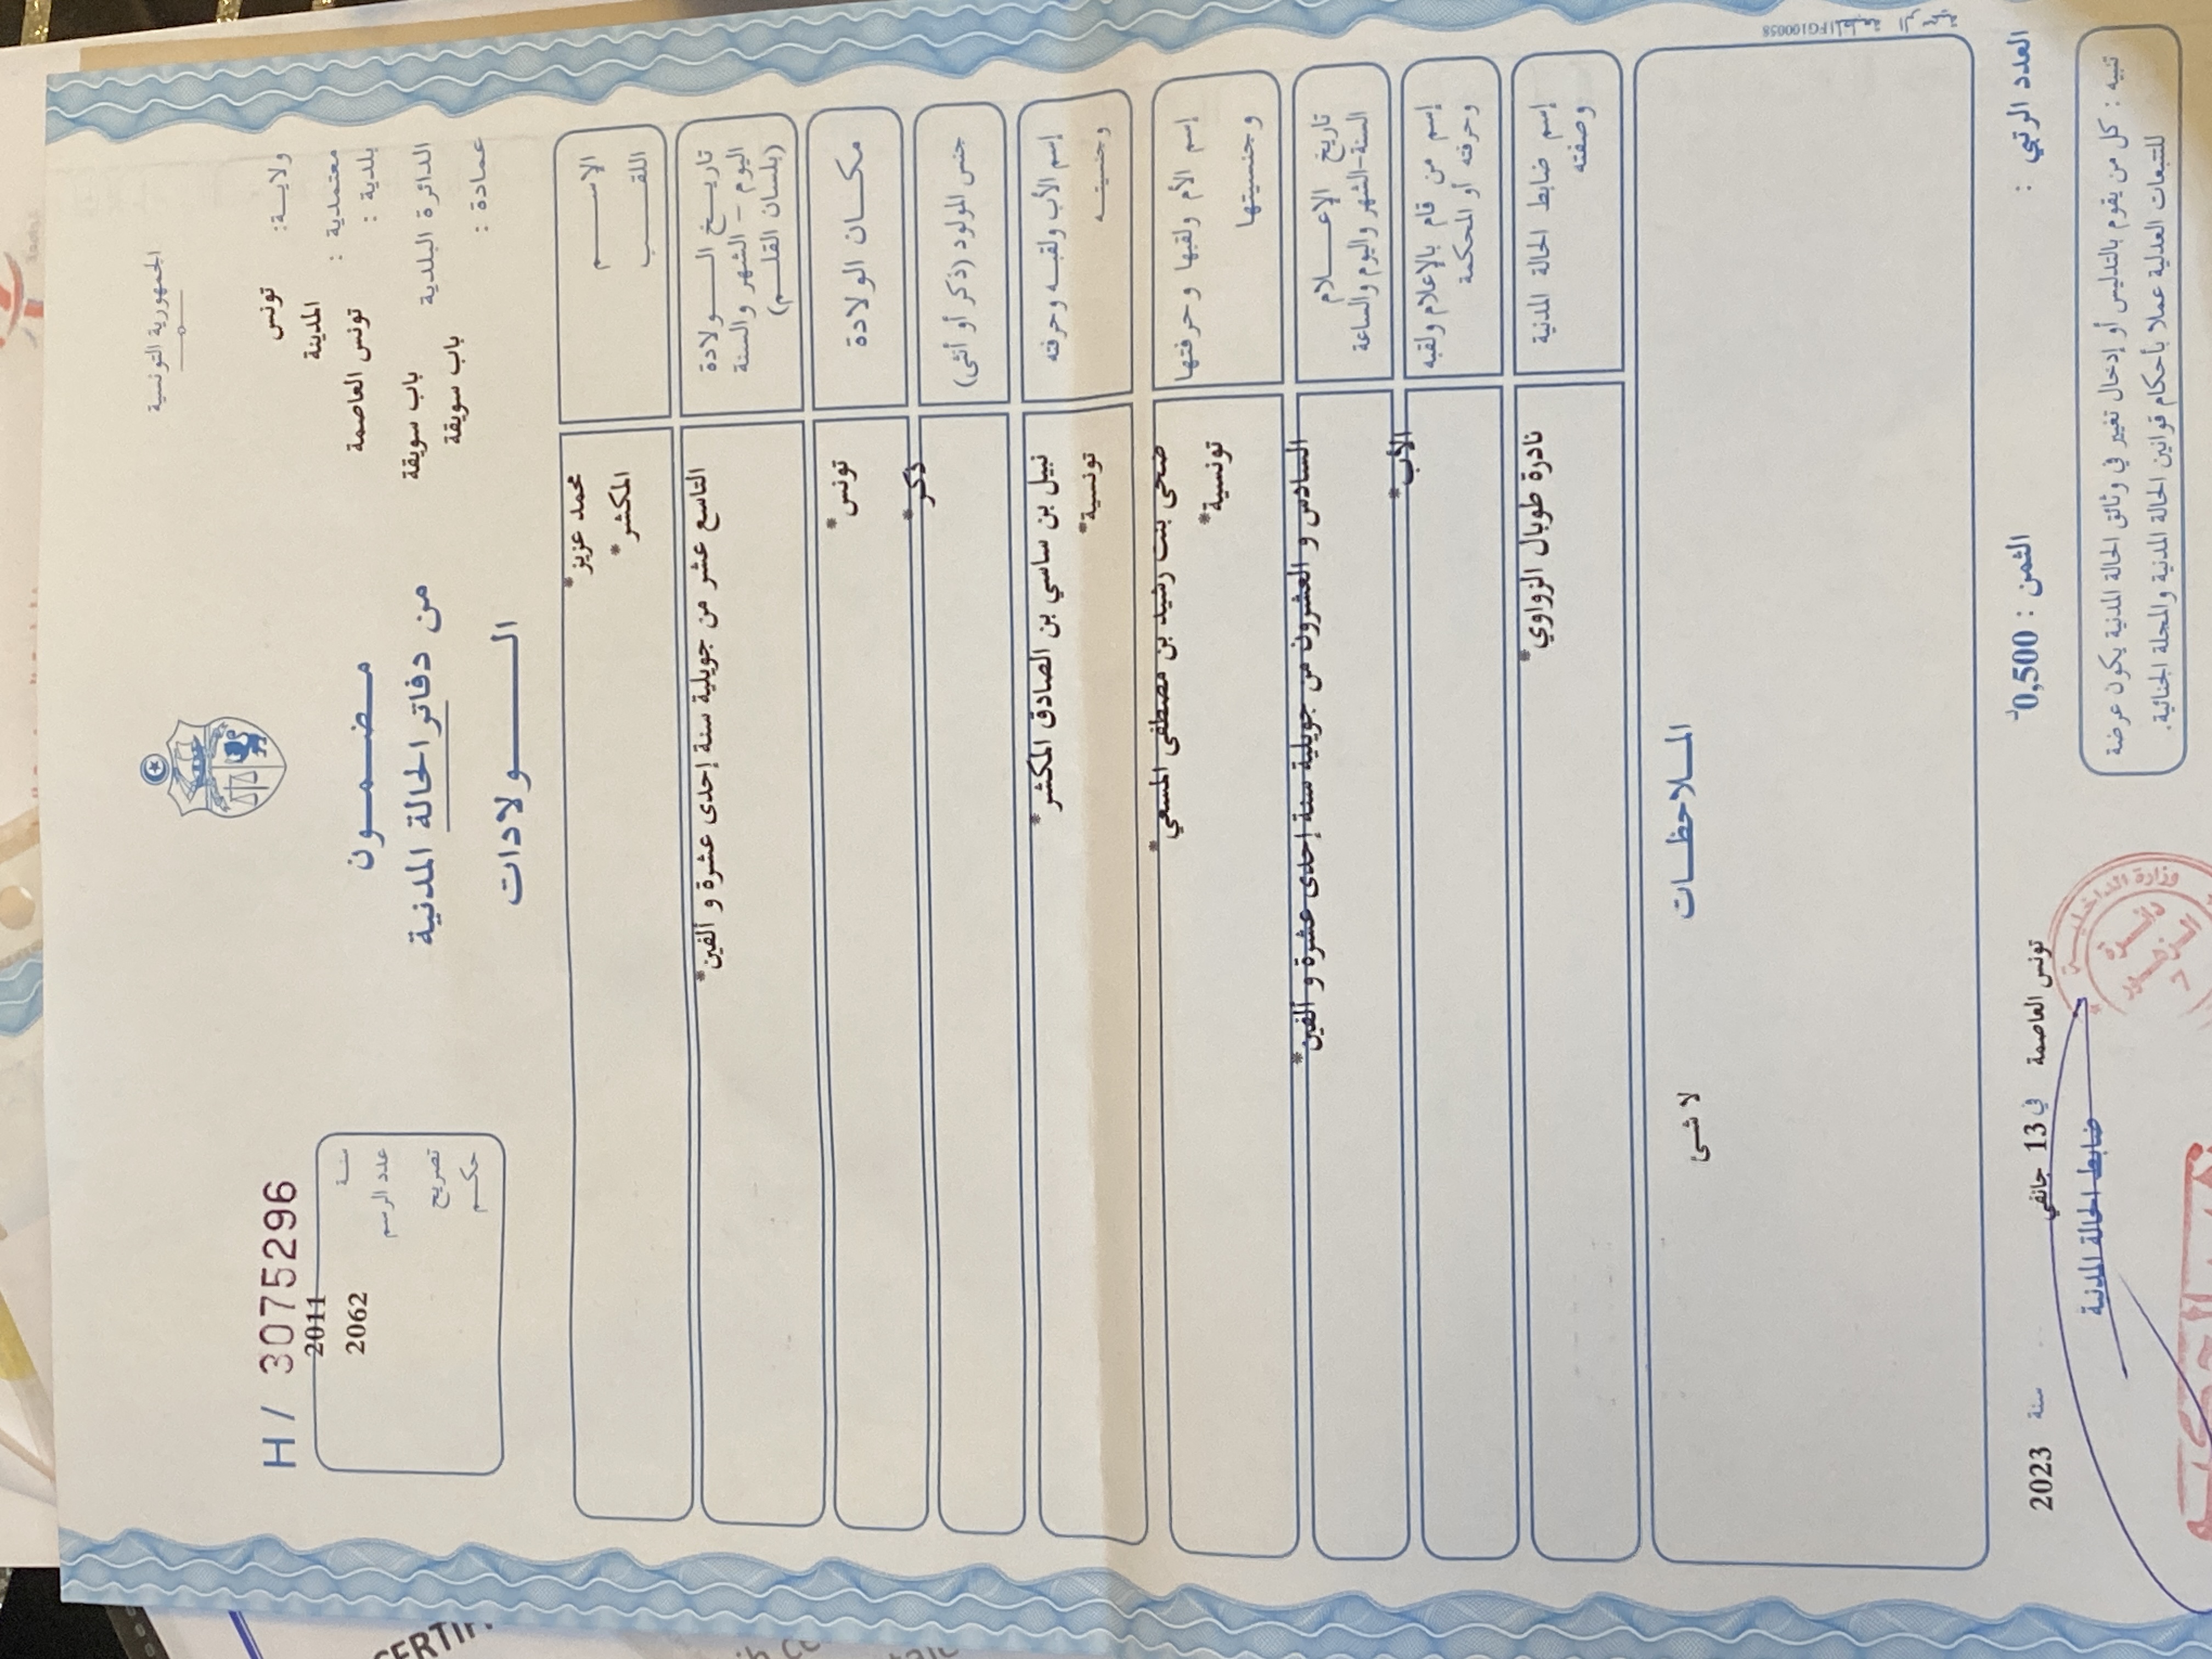 الجمهورية التونسية
ولاية: تونس
معتمدية : المدينة
بلدية : تونس العاصمة
الدائرة البلدية باب سويقة
عمادة : باب سويقة
مضمون
من دفاتر الحالة المدنية
الولادات
H / 3075296
سنة 2011
عدد الرسم 2062
تصريح
حكم
الاسم محمد عزيز*
اللقب المكشر*
تاريخ الولادة
اليوم - الشهر والسنة
(بلسان القلم)
التاسع عشر من جويلية سنة إحدى عشرة و ألفين*
مكان الولادة تونس*
جنس المولود (ذكر أو أنثى) ذكر*
إسم الأب ولقبه وحرفته نبيل بن ساسي بن الصادق المكشر*
وجنسيته تونسية*
إسم الأم ولقبها وحرفتها ضحى بنت رشيد بن مصطفى المسعي*
وجنسيتها تونسية*
تاريخ الإعلام
السنة-الشهر واليوم والساعة
السادس و العشرون من جويلية سنة إحدى عشرة و ألفين*
إسم من قام بالإعلام ولقبه
وحرفته أو المحكمة
الأب*
إسم ضابط الحالة المدنية
وصفته
نادرة طوبال الزواوي*
الملاحظات
لا شئ
FG100058
العدد الرتبي :
الثمن : 0,500د
تونس العاصمة في 13 جانفي سنة 2023
ضابط الحالة المدنية
تنبيه : كل من يقوم بالتدليس أو إدخال تغيير في وثائق الحالة المدنية يكون عرضة
للتتبعات العدلية عملا بأحكام قوانين الحالة المدنية والمجلة الجنائية.
وزارة الداخلية
دائرة
CERTIF